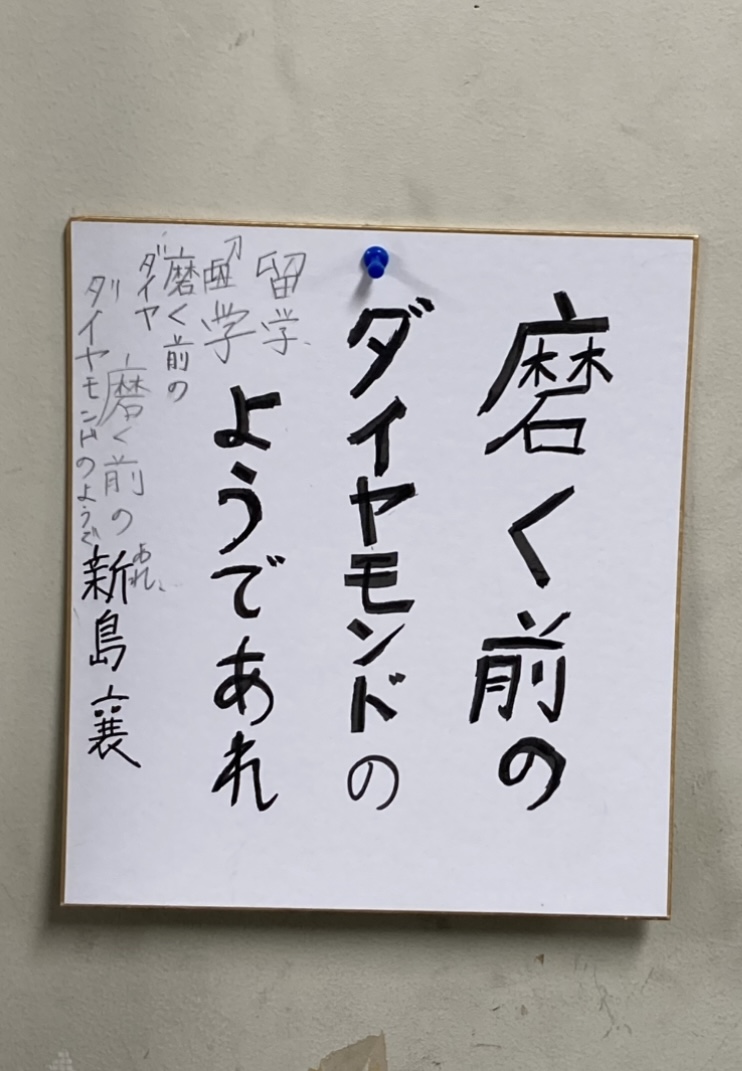 磨く前の
ダイヤモンドの
ようであれ
留学
留学
磨く前の
ダイヤ
磨く前の
ダイヤモンドのようで
あれ、
新島襄